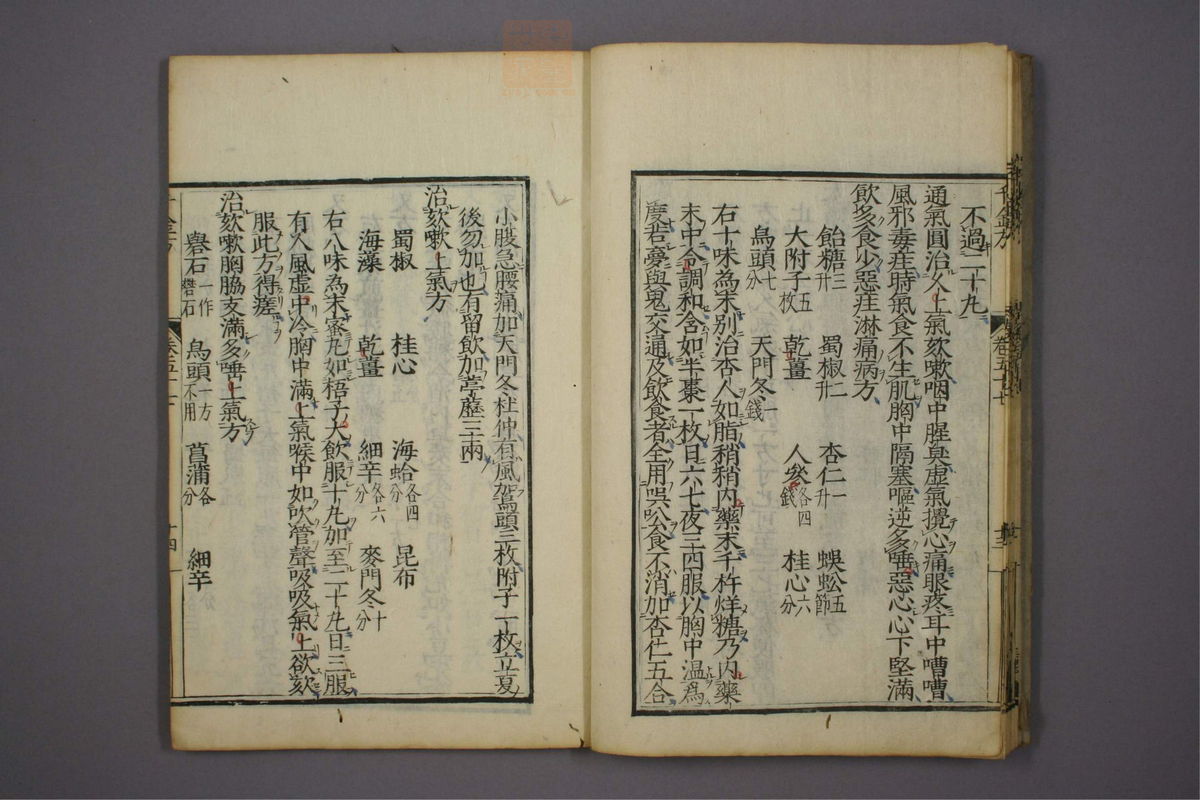 不過二十丸
通氣圓治人上氣欬嗽咽中腥臭虛氣攪心痛眼疼耳中嘈嘈
風邪毒疰時氣食不生肌胸中隔塞嘔逆多唾惡心心下堅滿
飲多食少惡疰淋痛病方
飴糖三升 蜀椒二升 杏仁一升 蜈蚣五節
大附子五枚 乾薑 人參各四錢 桂心六分
烏頭七分 天門冬一錢
右十味為末別治杏人如脂稍稍内藥末千杵烊糖乃内藥
末中令調和含如半棗一枚日六七夜三四服以胸中温為
度若夢與鬼交通及飲食者全用呉公食不消加杏仁五合
小腹急腰痛加天門冬杜仲有風加烏頭三枚附子一枚立夏
後勿加也有留飲加葶藶三兩
治欬嗽上氣方
蜀椒 桂心 海蛤各四分 昆布
海藻 乾薑 細辛各六分 麥門冬十分
右八味為末蜜丸如梧子大飲服十丸加至二十丸日三服
有人風虛中冷胸中滿上氣喉中如吹管聲吸吸氣上欲欬
服此方得瘥
治欬嗽胸脇支滿多唾上氣方
礜石一作礬石 烏頭一方不用 菖蒲各分 細辛
十四